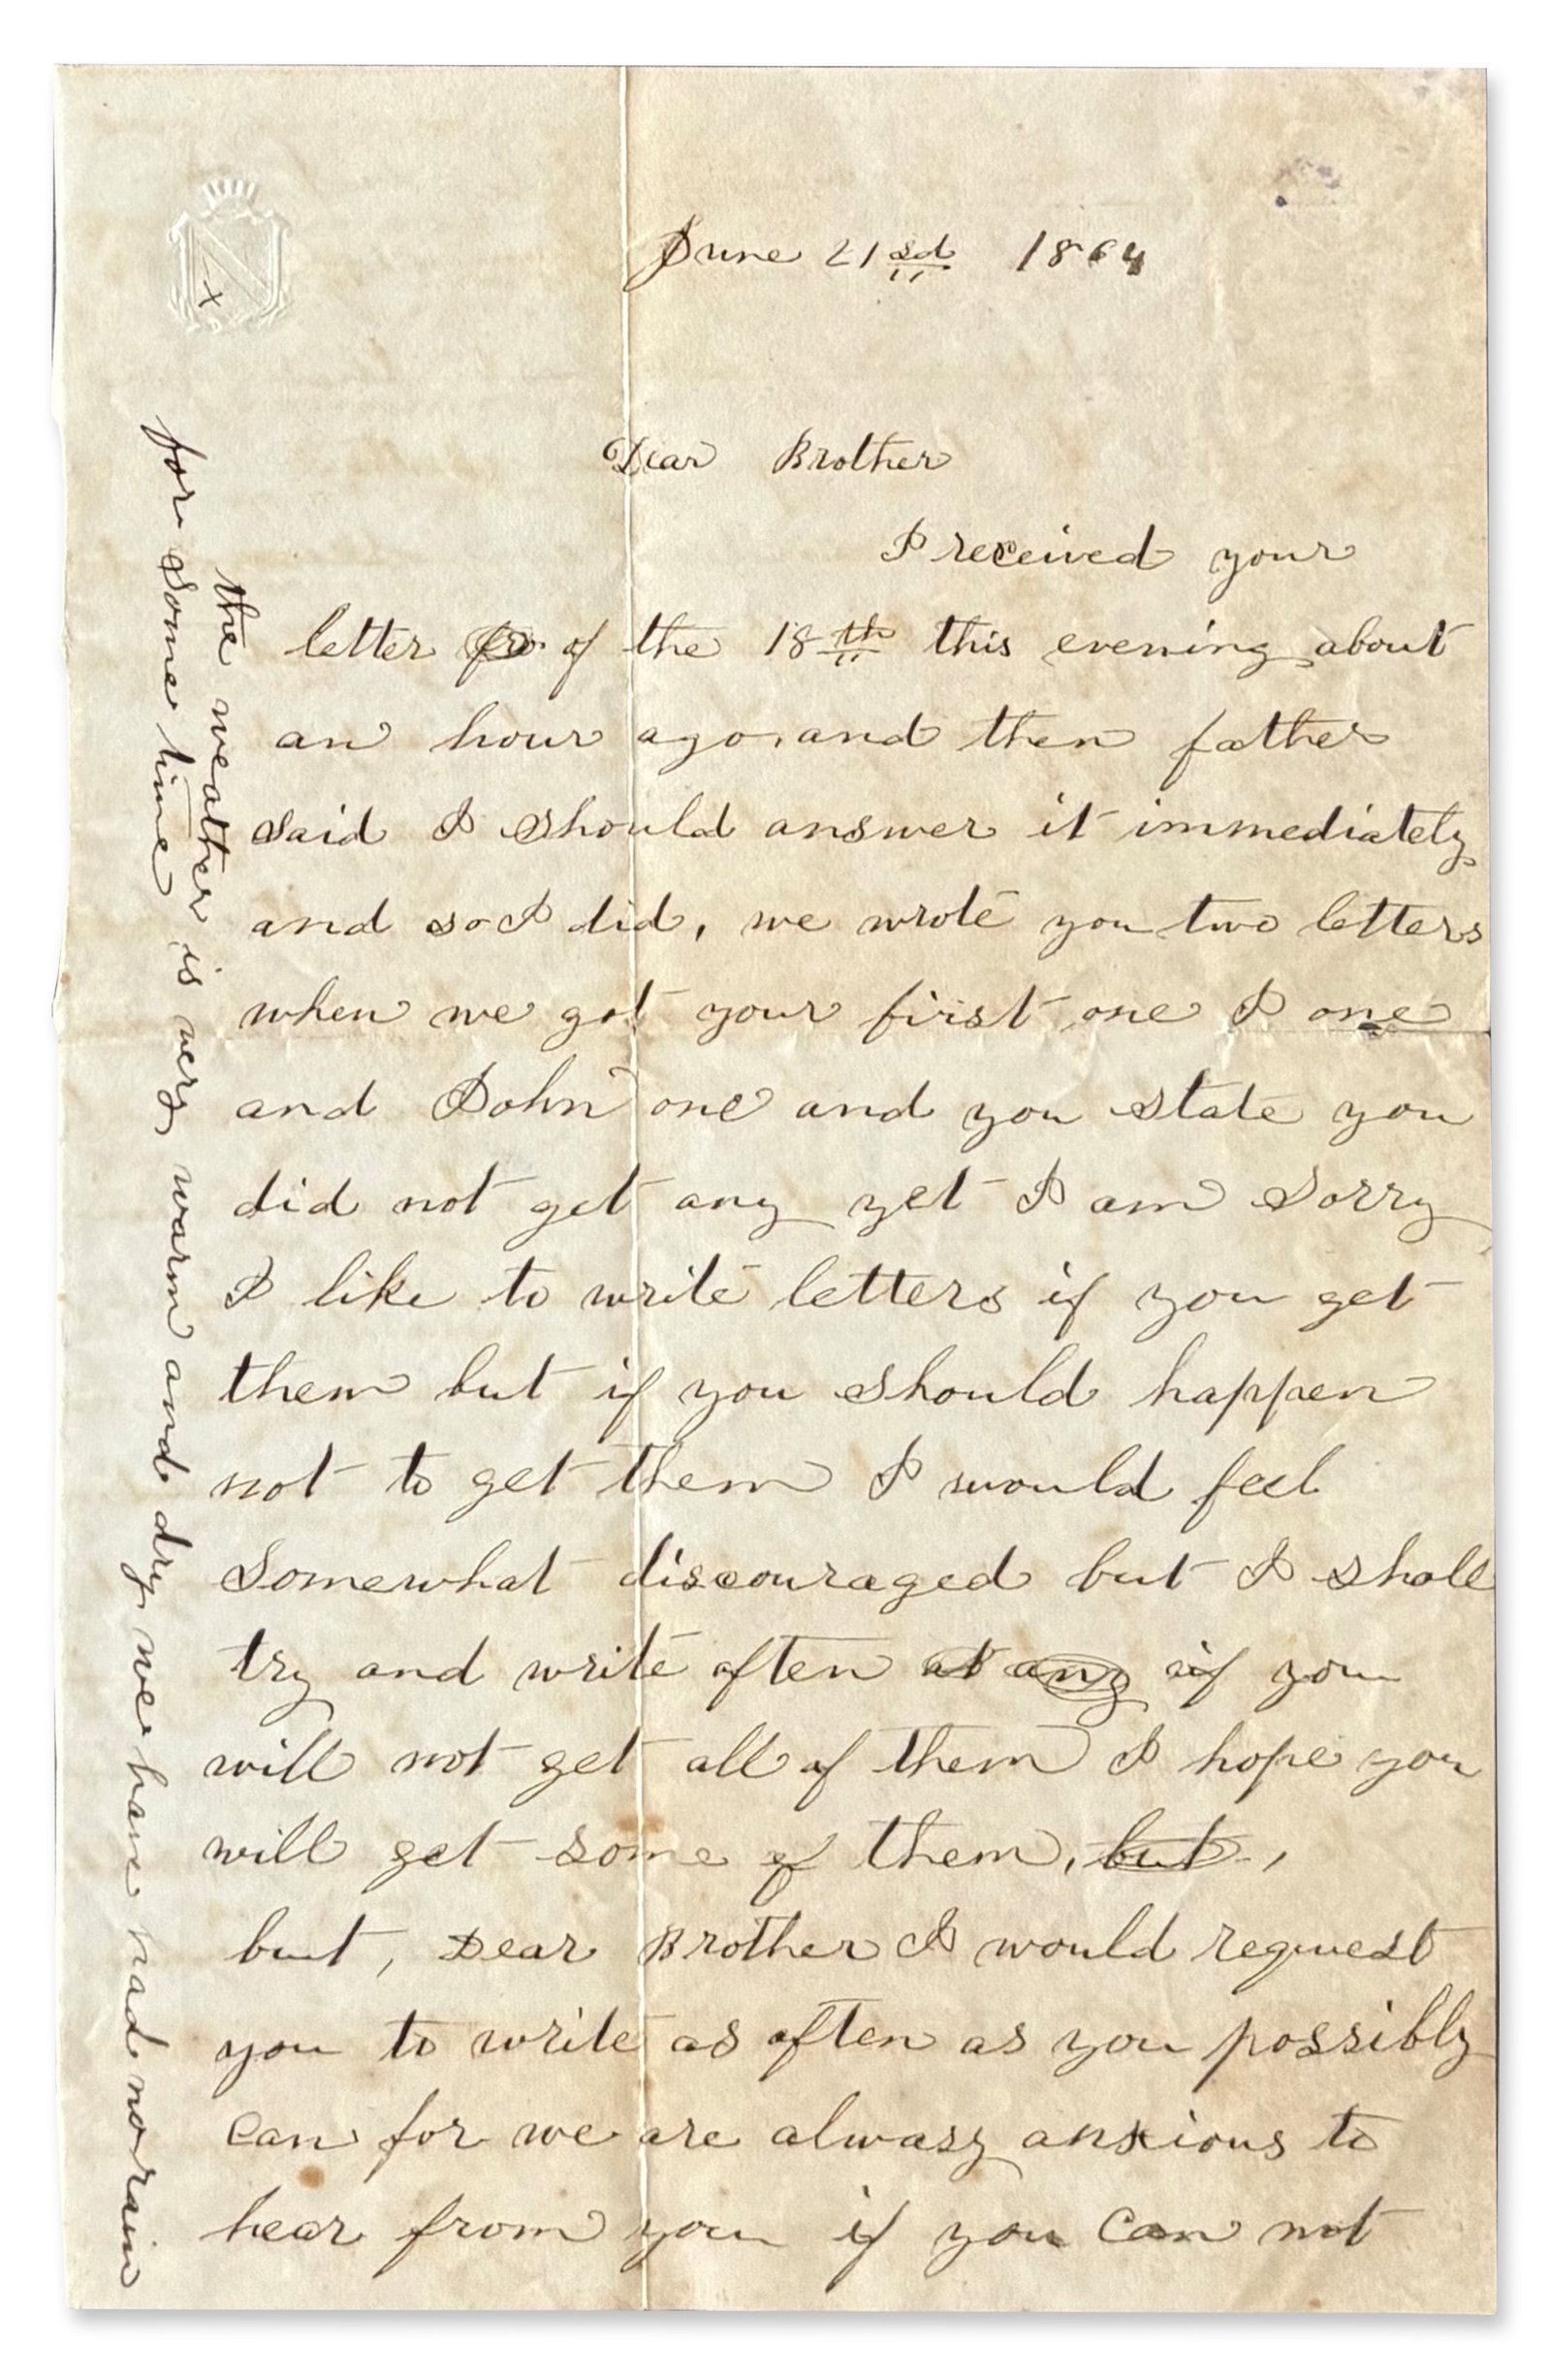 June 21sd 1864
Dear Brother
I received your
letter of the 18th this evening about
an hour ago, and then father
said I should answer it immediately
and so I did, we wrote you two letters
when we got your first one I one
and John one and you state you
did not get any yet I am sorry
I like to write letters if you get
them but if you should happen
not to get them I would feel
Somewhat discouraged but I shall
try and write often at any if you
will not get all of them I hope you
will get some of them, but,
but, Dear Brother I would request
you to write as often as you possibly
can for we are alwasy anxious to
hear from you if you can not
the weather is very warm and dry we have had no rain
for some time